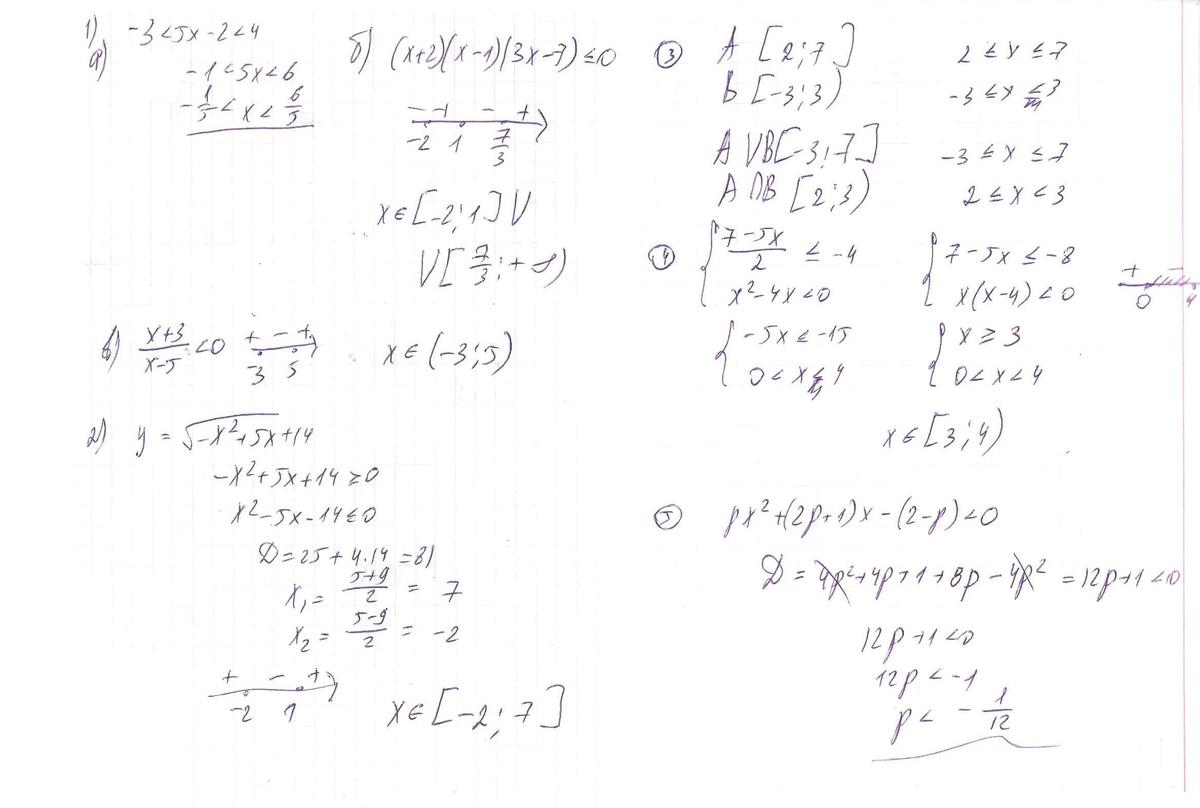 1)
а) -3<5x-2<4
-1<5x<6
-1/5 < x < 6/5
б) (x+2)(x-1)(3x-7)≤0
- + - +
-2 1 7/3
x∈[-2;1]V
V[7/3;+∞)
в) x+3/x-5 <0 + - + -3 5 x∈(-3;5)
2) y = √-x²+5x+14
-x²+5x+14≥0
x²-5x-14≤0
D=25+4·14=81
x₁= 5+9/2 = 7
x₂= 5-9/2 = -2
+ - +
-2 7 x∈[-2;7]
③ A [2;7] 2≤x≤7
B [-3;3) -3≤x<3
AVB[-3;7] -3≤x≤7
A∩B [2;3) 2≤x<3
④ { 7-5x/2 ≤ -4 { 7-5x≤-8
x²-4x<0 x(x-4)<0
+ -
0 4
{ -5x≤-15 { x≥3
0<x<4 0<x<4
x∈[3;4)
⑤ px²+(2p+1)x-(2-p)<0
D = 4p²+4p+1+8p-4p² =12p+1<0
12p+1<0
12p<-1
p< -1/12